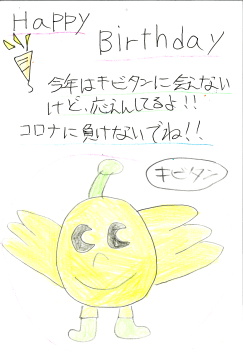 Happy
Birthday
今年はキビタンに会えない
けど、応えんしてるよ!!
コロナに負けないでね!!
キビタン